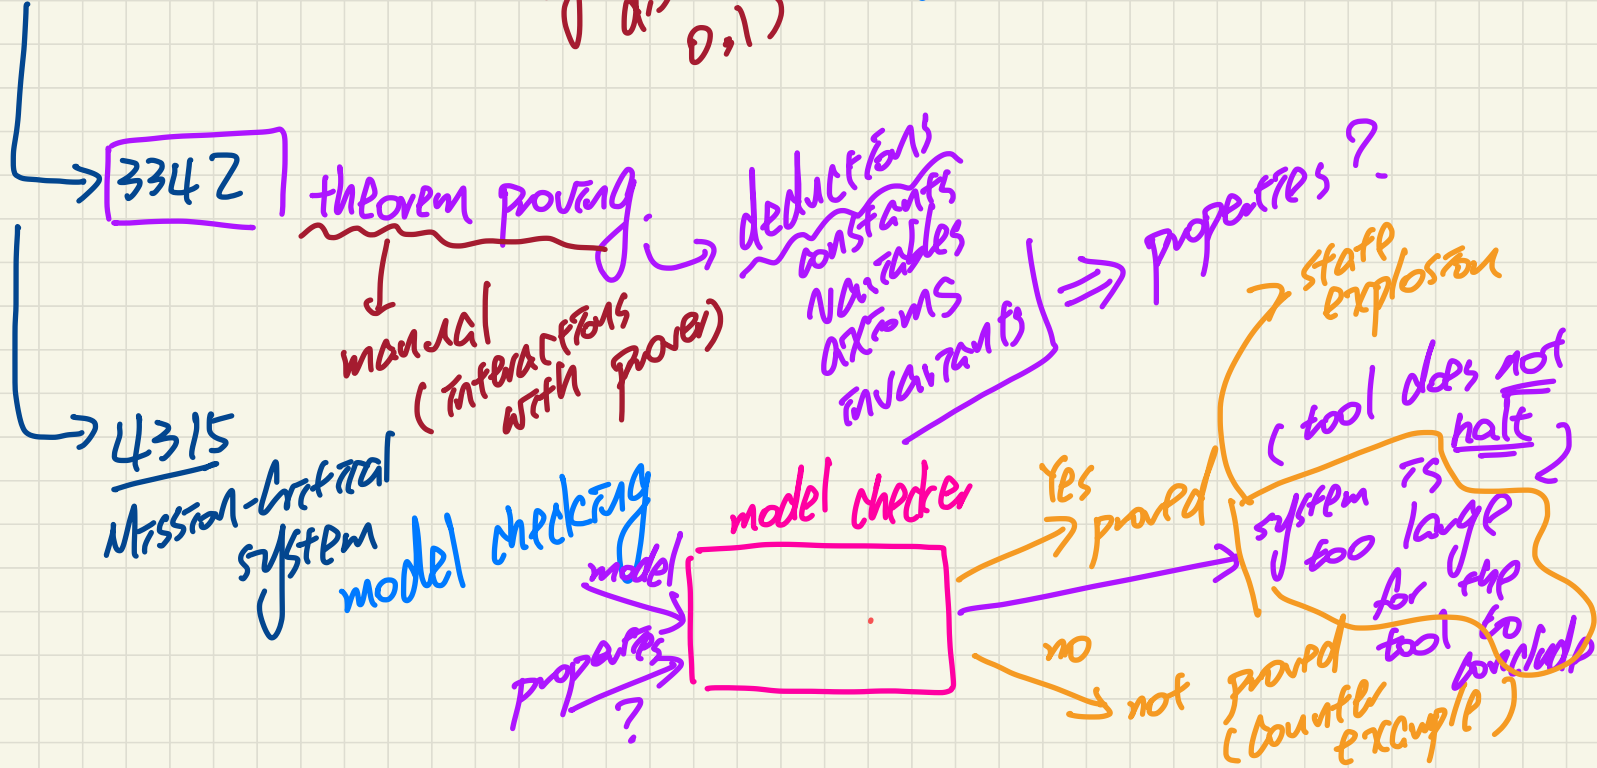 0,1)
3342
theorem proving:
manual
(interactions
with prover)
deductions
constants
variables
axioms
invariants
properties?
4315
Mission-Critical
system
model checking
model
properties
?
model checker
Yes
proved
no
not proved
(counter
example)
state
explosion
(tool does not
halt)
system is
too large
for the
tool to
conclude